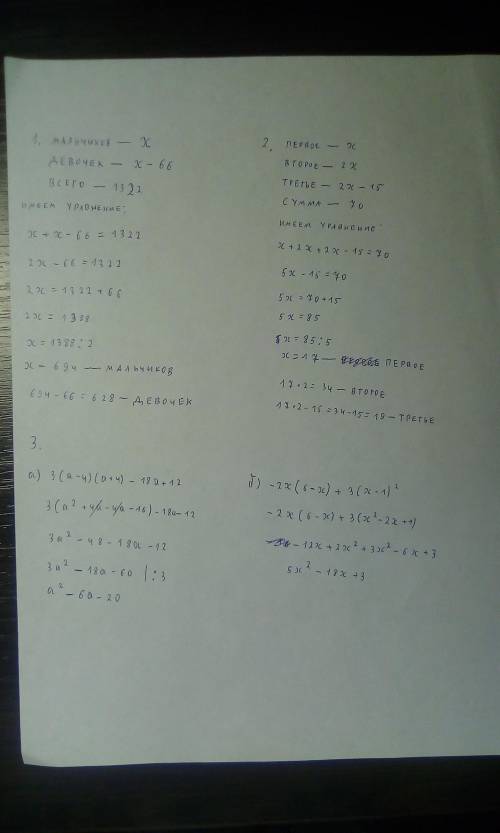 1. МАЛЬЧИКОВ — x
ДЕВОЧЕК — x - 66
ВСЕГО — 1322
ИМЕЕМ УРАВНЕНИЕ:
x + x - 66 = 1322
2x - 66 = 1322
2x = 1322 + 66
2x = 1388
x = 1388 : 2
x = 694 — МАЛЬЧИКОВ
694 - 66 = 628 — ДЕВОЧЕК
2. ПЕРВОЕ — x
ВТОРОЕ — 2x
ТРЕТЬЕ — 2x - 15
СУММА — 70
ИМЕЕМ УРАВНЕНИЕ:
x + 2x + 2x - 15 = 70
5x - 15 = 70
5x = 70 + 15
5x = 85
x = 85 : 5
x = 17 — ПЕРВОЕ
17 * 2 = 34 — ВТОРОЕ
17 * 2 - 15 = 34 - 15 = 19 - ТРЕТЬЕ
3.
а) 3(a-4)(a+4) - 18a + 12
3(a² + 4a - 4a - 16) - 18a - 12
3a² - 48 - 18a - 12
3a² - 18a - 60 | : 3
a² - 6a - 20
б) -2x(6-x) + 3(x-1)²
-2x(6-x) + 3(x² - 2x + 1)
-12x + 2x² + 3x² - 6x + 3
5x² - 18x + 3